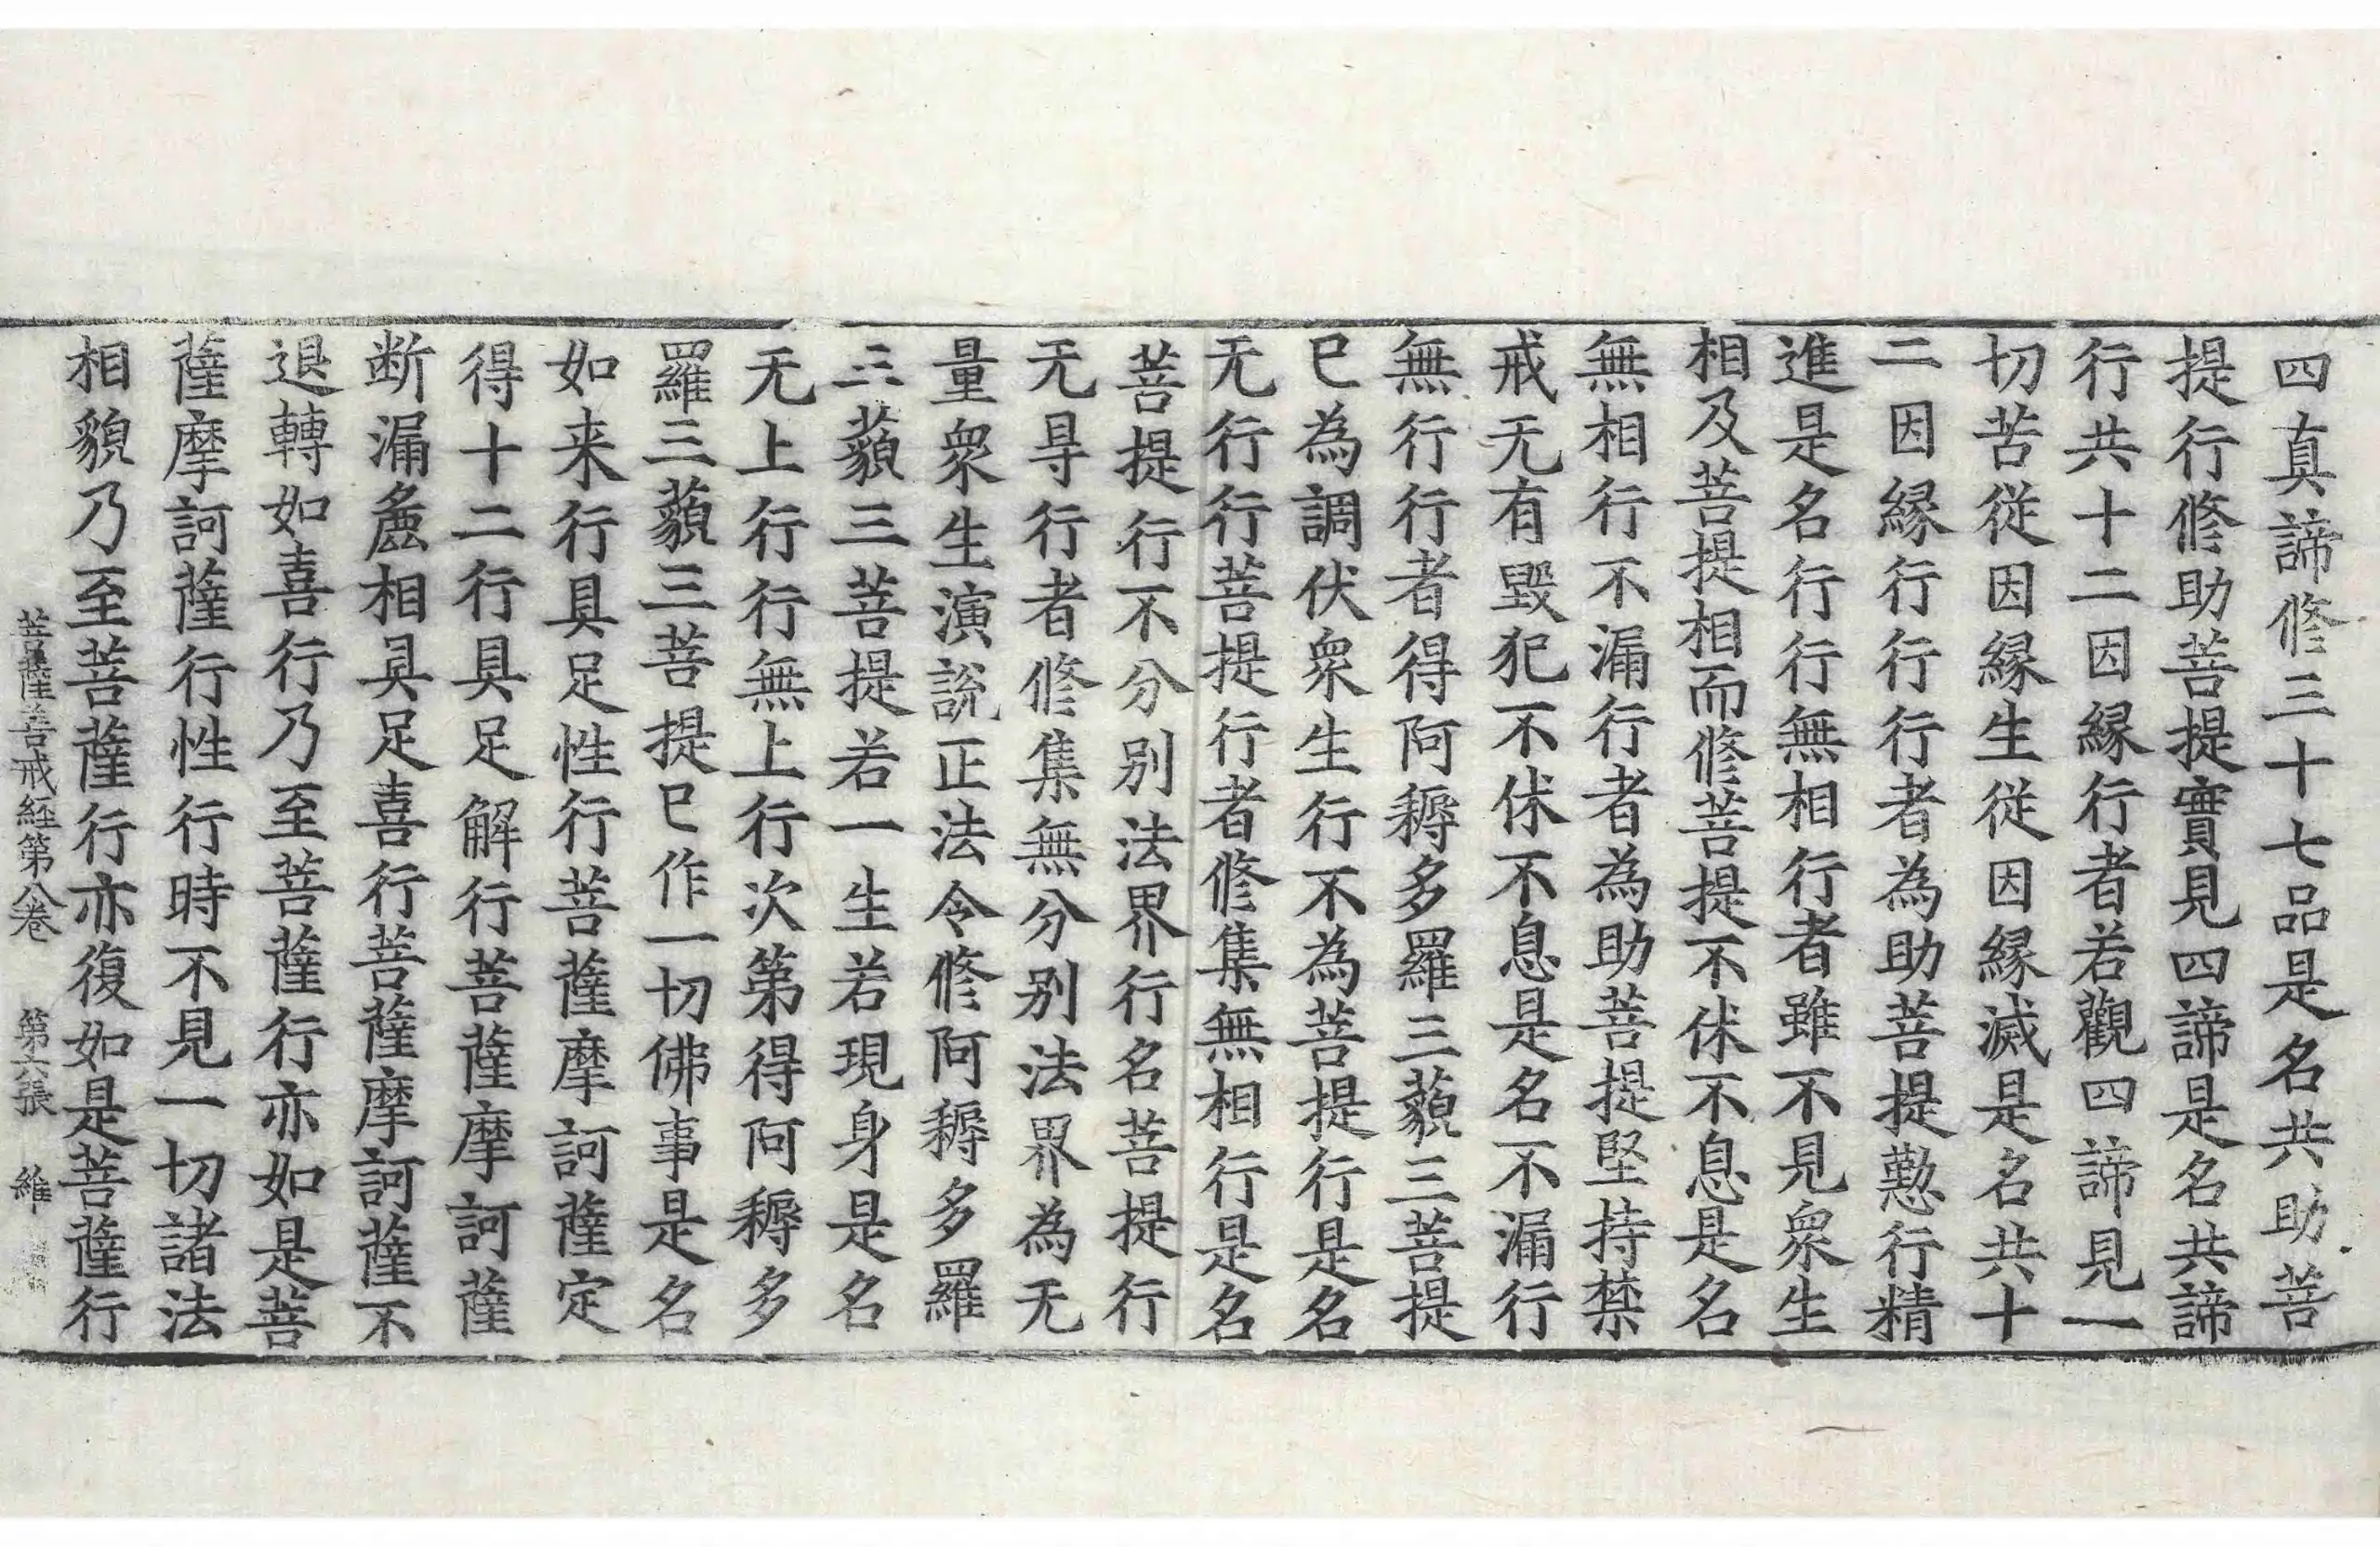 四真諦修三十七品是名共助菩
提行修助菩提實見四諦是名共諦
行共十二因縁行者若觀四諦見一
切苦從因縁生從因縁滅是名共十
二因縁行行行者為助菩提懃行精
進是名行行無相行者雖不見衆生
相及菩提相而修菩提不休不息是名
無相行不漏行者為助菩提堅持禁
戒无有毀犯不休不息是名不漏行
無行行者得阿耨多羅三藐三菩提
已為調伏衆生行不為菩提行是名
无行行菩提行者修集無相行是名
菩提行不分別法界行名菩提行
无㝵行者修集無分別法界為无
量衆生演說正法令修阿耨多羅
三藐三菩提若一生若現身是名
无上行行無上行次第得阿耨多
羅三藐三菩提已作一切佛事是名
如来行具足性行菩薩摩訶薩定
得十二行具足解行菩薩摩訶薩
断漏麁相具足喜行菩薩摩訶薩不
退轉如喜行乃至菩薩行亦如是菩
薩摩訶薩行性行時不見一切諸法
相貌乃至菩薩行亦復如是菩薩行
菩薩善戒經第八卷　第六張　維